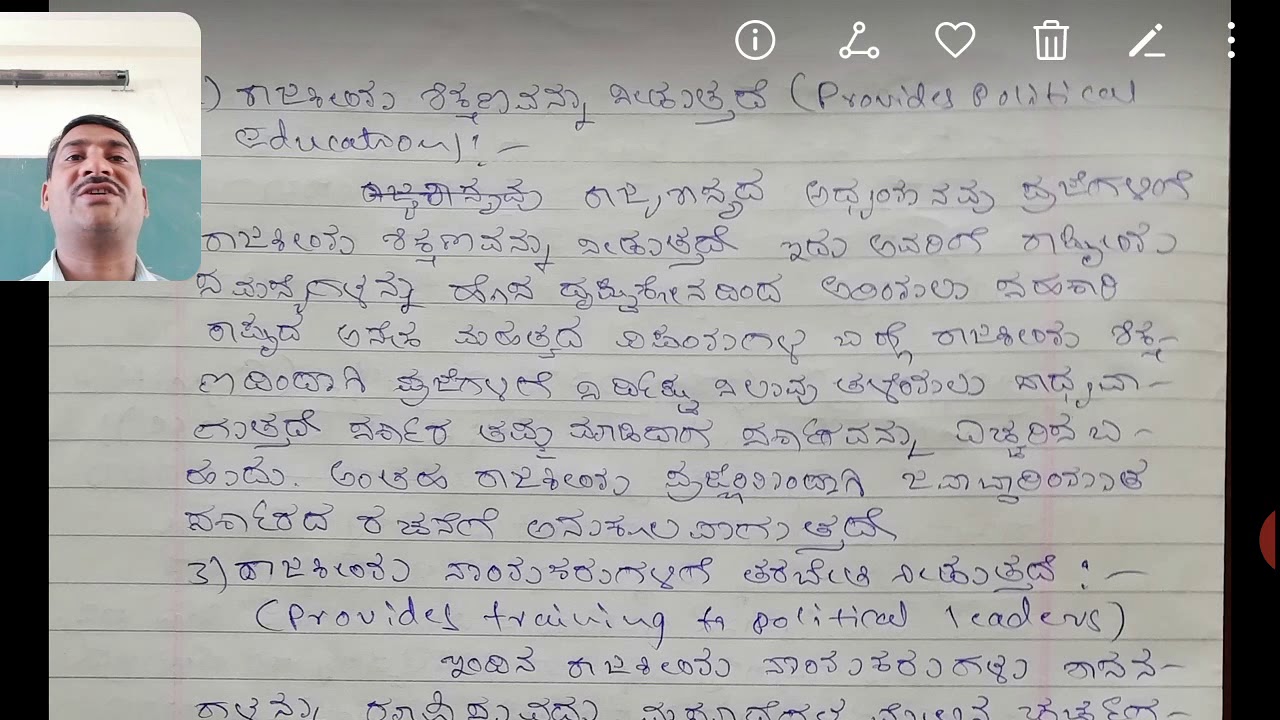 ) ರಾಜಕೀಯ ಶಿಕ್ಷಣವನ್ನು ನೀಡುತ್ತದೆ (Provides Political
Education):-
ರಾಜ್ಯಶಾಸ್ತ್ರವು ರಾಜ್ಯಶಾಸ್ತ್ರದ ಅಧ್ಯಯನವು ಪ್ರಜೆಗಳಿಗೆ
ರಾಜಕೀಯ ಶಿಕ್ಷಣವನ್ನು ನೀಡುತ್ತದೆ ಇದು ಅವರಿಗೆ ರಾಷ್ಟ್ರೀಯ
ಸಮಸ್ಯೆಗಳನ್ನು ಹೊಸ ದೃಷ್ಟಿಕೋನದಿಂದ ಅರಿಯಲು ಸಹಕಾರಿ
ರಾಷ್ಟ್ರದ ಅನೇಕ ಮಹತ್ವದ ವಿಷಯಗಳ ಬಗ್ಗೆ ರಾಜಕೀಯ ಶಿಕ್ಷ-
ಣದಿಂದಾಗಿ ಪ್ರಜೆಗಳಿಗೆ ನಿರ್ದಿಷ್ಟ ನಿಲುವು ತಳೆಯಲು ಸಾಧ್ಯವಾ-
ಗುತ್ತದೆ ಸರ್ಕಾರ ತಪ್ಪು ಮಾಡಿದಾಗ ಸರ್ಕಾರವನ್ನು ಎಚ್ಚರಿಸಬ-
ಹುದು. ಅಂತಹ ರಾಜಕೀಯ ಪ್ರಜ್ಞೆಯಿಂದಾಗಿ ಜವಾಬ್ದಾರಿಯುತ
ಸರ್ಕಾರದ ರಚನೆಗೆ ಅನುಕೂಲವಾಗುತ್ತದೆ
3) ರಾಜಕೀಯ ನಾಯಕರುಗಳಿಗೆ ತರಬೇತಿ ನೀಡುತ್ತದೆ :-
(Provides training to political leaders)
ಇಂದಿನ ರಾಜಕೀಯ ನಾಯಕರುಗಳು ಶಾಸನ-